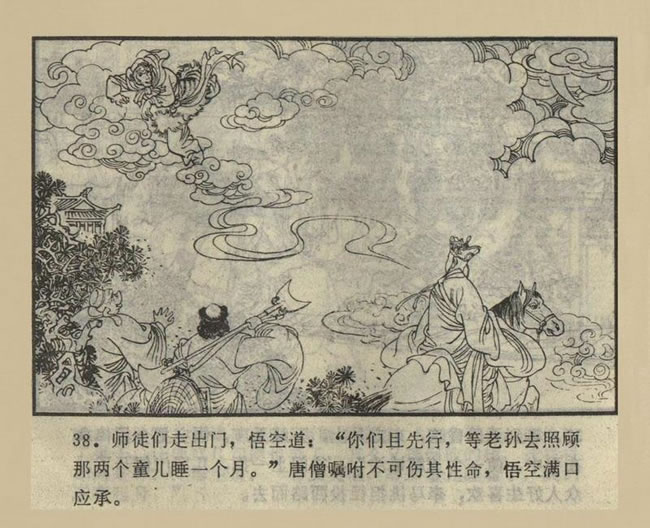 38．师徒们走出门，悟空道：“你们且先行，等老孙去照顾
那两个童儿睡一个月。”唐僧嘱咐不可伤其性命，悟空满口
应承。